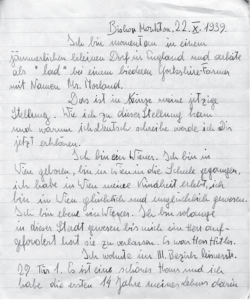 Bishop Monkton, 22. X. 1939.
Ich bin momentan in einem
jämmerlichen kleinen Dorf in England und arbeite
als "lad" bei einem biederen Yorkshire-Farmer
mit Namen Mr. Morland.
Das ist in Kürze meine jetzige
Stellung. Wie ich zu dieser Stellung kam
und warum ich deutsch schreibe werde ich Dir
jetzt erklären.
Ich bin ein Wiener. Ich bin in
Wien geboren, bin in Wien in die Schule gegangen,
ich habe in Wien meine Kindheit erlebt, ich
bin in Wien glücklich und unglücklich gewesen.
Ich bin eben ein Wiener. Ich bin solange
in dieser Stadt gewesen bis mich ein Herr auf-
gefordert hat sie zu verlassen. Es war Herr Hitler.
Ich wohnte im III. Bezirk
22 Tür 1. Es ist ein schönes Haus und ich
habe die ersten 14 Jahre meines Lebens darin